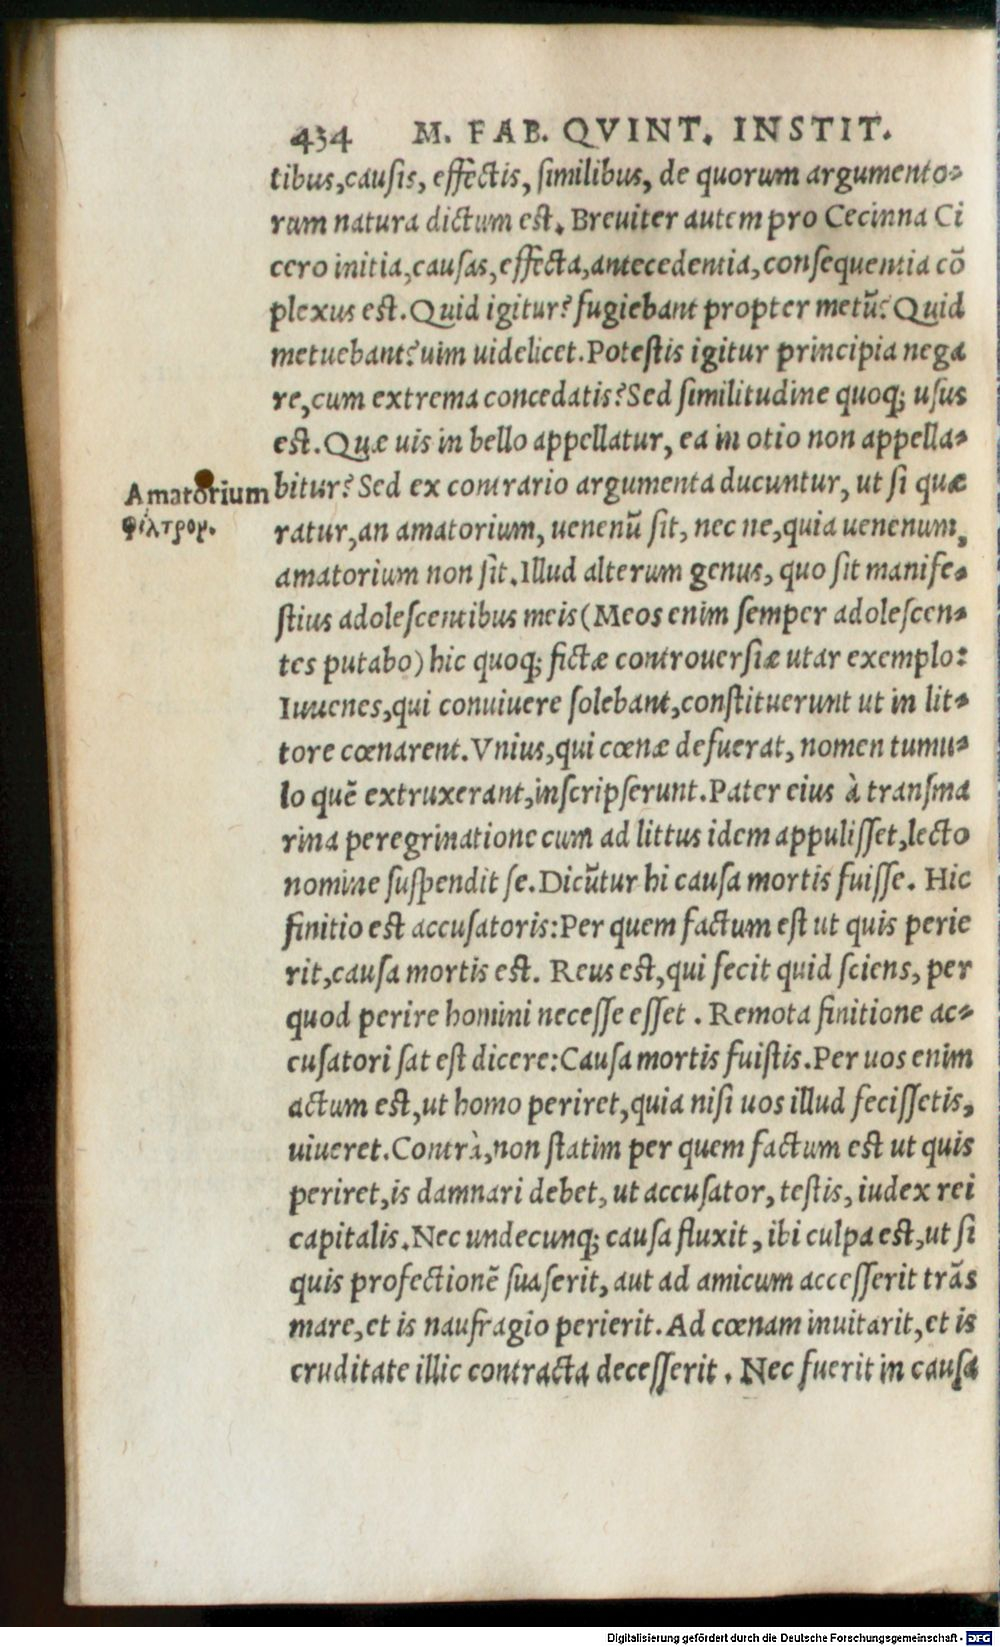 434 M. FAB. QVINT. INSTIT.
tibus,causis, effectis, similibus, de quorum argumento-
rum natura dictum est. Breuiter autem pro Cecinna Ci
cero initia,causas,effecta,antecedentia,consequentia cō
plexus est. Quid igitur? fugiebant propter metū? Quid
metuebant? uim uidelicet. Potestis igitur principia nega
re,cum extrema concedatis? Sed similitudine quoq; usus
est. Quæ uis in bello appellatur, ea in otio non appella-
bitur? Sed ex contrario argumenta ducuntur, ut si quæ
Amatorium
φίλτρον.
ratur,an amatorium, uenenū sit, nec ne,quia uenenum,
amatorium non sit. Illud alterum genus, quo sit manife-
stius adolescentibus meis (Meos enim semper adolescen-
tes putabo) hic quoq; fictæ controuersiæ utar exemplo:
Iuuenes,qui conuiuere solebant,constituerunt ut in lit-
tore cœnarent. Vnius,qui cœnæ defuerat, nomen tumu-
lo quē extruxerant,inscripserunt. Pater eius à transma
rina peregrinatione cum ad littus idem appulisset,lecto
nomine suspendit se. Dicūtur hi causa mortis fuisse. Hic
finitio est accusatoris: Per quem factum est ut quis perie
rit,causa mortis est. Reus est,qui fecit quid sciens, per
quod perire homini necesse esset . Remota finitione ac-
cusatori sat est dicere: Causa mortis fuistis. Per uos enim
actum est,ut homo periret,quia nisi uos illud fecissetis,
uiueret. Contrà,non statim per quem factum est ut quis
periret,is damnari debet, ut accusator, testis, iudex rei
capitalis. Nec undecunq; causa fluxit, ibi culpa est,ut si
quis profectionē suaserit, aut ad amicum accesserit trās
mare,et is naufragio perierit. Ad cœnam inuitarit,et is
cruditate illic contracta decesserit . Nec fuerit in causa
Digitalisierung gefördert durch die Deutsche Forschungsgemeinschaft - DFG